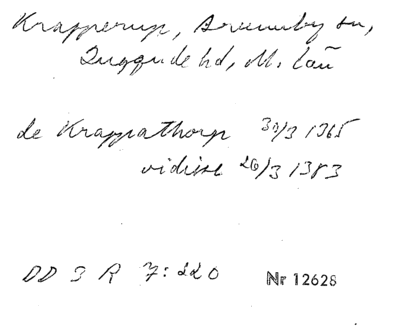 Krapperup, Brunnby sn,
Luggude hd, M. län
de Krappathorp 30/3 1365
vidisse 20/3 1383
DD 3 R 7:220 Nr 12628